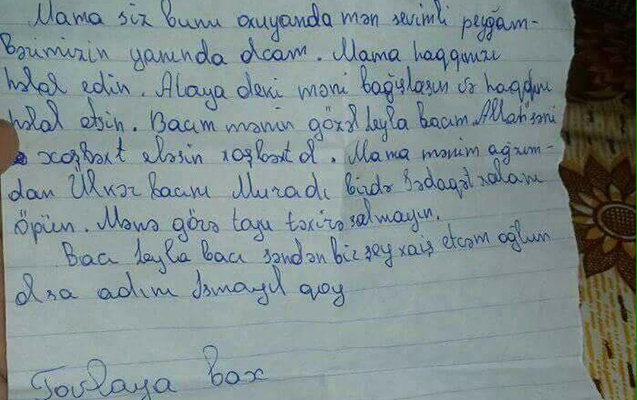 Mama siz bunu oxuyanda mən sevimli peyğəm-
bərimizin yanında olcam. Mama haqqınızı
halal edin. Ataya deki məni bağışlasın və haqqın
halal etsin. Bacım mənim gözəl Leyla bacım Allah səni
xoşbəxt eləsin xoşbəxt ol. Mama mənim ağzım-
dan Ülkər bacımı Muradı birdə Sədaqət xalamı
öpün. Mənə görə toyu təxirə salmayın.
Bacı Leyla bacı səndən bir şey xaiş etcəm oğlun
olsa adını İsmayıl qoy
Tovlaya bax